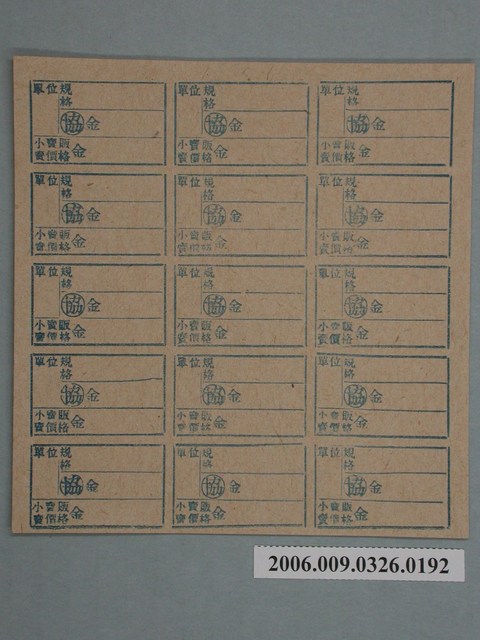 單位規格 單位規格 單位規格
協金 協金 協金
小賣販
賣價格金 小賣販
賣價格金 小賣販
賣價格金
單位規格 單位規格 單位規格
協金 協金 協金
小賣販
賣價格金 小賣販
賣價格金 小賣販
賣價格金
單位規格 單位規格 單位規格
協金 協金 協金
小賣販
賣價格金 小賣販
賣價格金 小賣販
賣價格金
單位規格 單位規格 單位規格
協金 協金 協金
小賣販
賣價格金 小賣販
賣價格金 小賣販
賣價格金
單位規格 單位規格 單位規格
協金 協金 協金
小賣販
賣價格金 小賣販
賣價格金 小賣販
賣價格金
2006.009.0326.0192